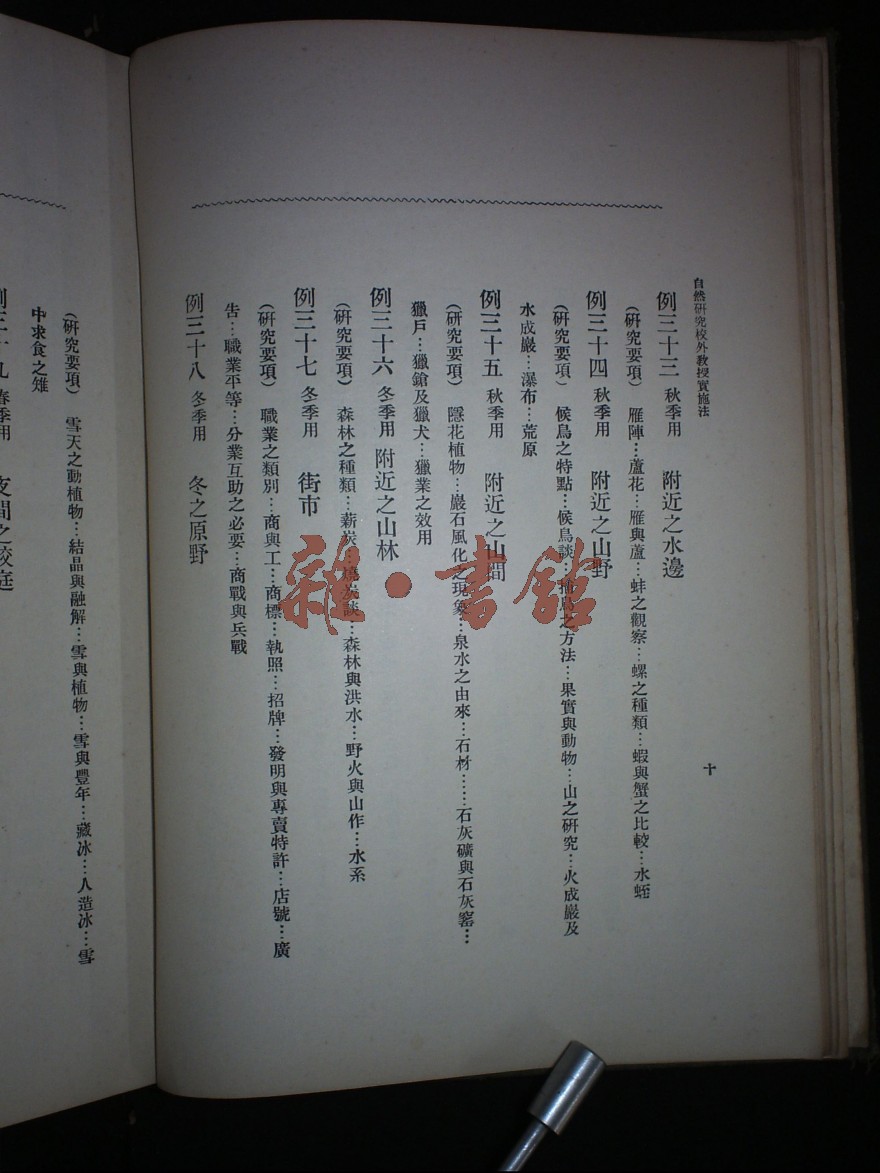 自然研究校外教授實施法
十
例三十三 秋季用 附近之水邊
(研究要項) 雁陣…蘆花…雁與蘆…蚌之觀察…螺之種類…蝦與蟹之比較…水蛭
例三十四 秋季用 附近之山野
(研究要項) 候鳥之特點…候鳥談…捕鳥之方法…果實與動物…山之研究…火成巖及
水成巖…瀑布…荒原
例三十五 秋季用 附近之山間
(研究要項) 隱花植物…巖石風化之現象…泉水之由來…石材……石灰礦與石灰窰…
獵戶…獵鎗及獵犬…獵業之效用
例三十六 冬季用 附近之山林
(研究要項) 森林之種類…薪炭…燒炭談…森林與洪水…野火與山作…水系
例三十七 冬季用 街市
(研究要項) 職業之類別…商與工…商標…執照…招牌…發明與專賣特許…店號…廣
告…職業平等…分業互助之必要…商戰與兵戰
例三十八 冬季用 冬之原野
(研究要項) 雪天之動植物…結晶與融解…雪與植物…雪與豐年…藏冰…人造冰…雪
中求食之雉
例三十九 春季用 夜間之校庭
雜·書館